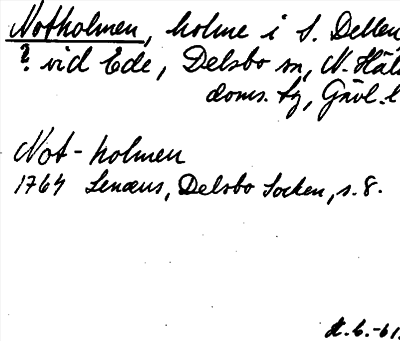 Notholmen, holme i S. Dellen
? vid Ede, Delsbo sn, N. Häl
doms. tg, Gävl. l
Not-holmen
1764 Lenæus, Delsbo Socken, s. 8.